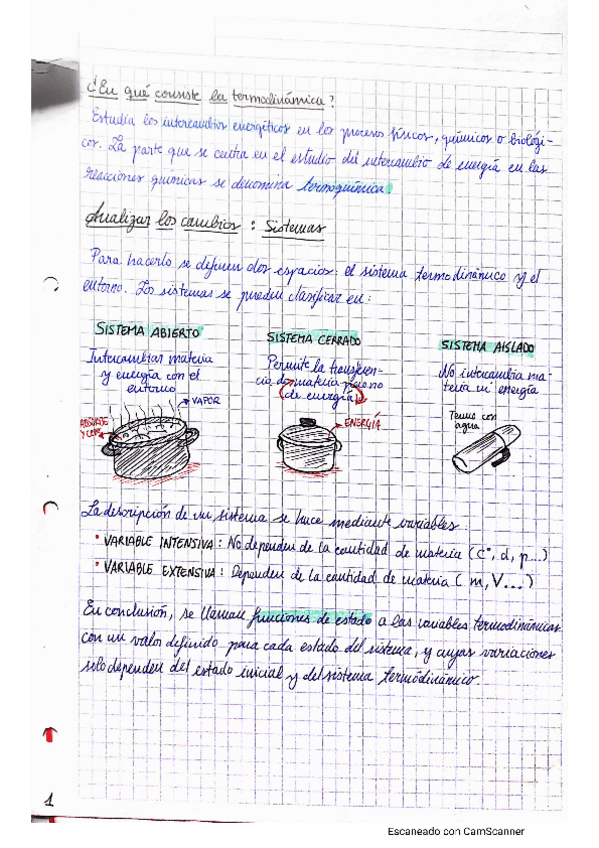 ¿En qué consiste la termodinámica?
Estudia los intercambios energéticos en los procesos físicos, químicos o biológi-
cos. La parte que se centra en el estudio del intercambio de energía en las
reacciones químicas se denomina termoquímica.
Analizar los cambios : Sistemas
Para hacerlo se definen dos espacios: el sistema termodinámico y el
entorno. Los sistemas se pueden clasificar en:
SISTEMA ABIERTO
Intercambiar materia
y energía con el
entorno
VAPOR
Y
SISTEMA CERRADO
Permite la transferen-
cia de materia pero no
de energía
ENERGÍA
SISTEMA AISLADO
No intercambia ma-
teria ni energía
Termo con
agua
La descripción de un sistema se hace mediante variables:
• VARIABLE INTENSIVA: No dependen de la cantidad de materia (Cº, d, p...)
• VARIABLE EXTENSIVA: Dependen de la cantidad de materia (m, V...)
En conclusión, se llaman funciones de estado a las variables termodinámicas
con un valor definido para cada estado del sistema, y cuyas variaciones
solo dependen del estado inicial y del sistema termodinámico.
1
Escaneado con CamScanner